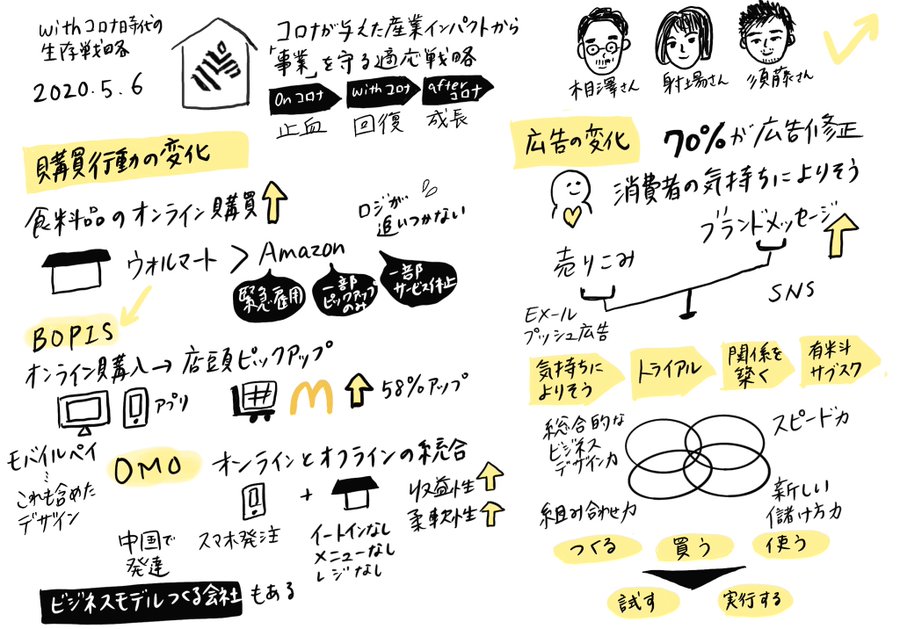 withコロナ時代の
生存戦略
2020.5.6
コロナが与えた産業インパクトから
「事業」を守る適応戦略
onコロナ
withコロナ
afterコロナ
止血
回復
成長
相澤さん
射場さん
須藤さん
購買行動の変化
食料品のオンライン購買
ロジが
追いつかない
ウォルマート > Amazon
緊急雇用
一部
ピックアップ
のみ
一部
サービス休止
BOPIS
オンライン購入→店頭ピックアップ
アプリ
58%アップ
モバイルペイ
これも含めた
デザイン
OMO
オンラインとオフラインの統合
中国で
発達
スマホ発注
+
イートインなし
メニューなし
レジなし
収益性
柔軟性
ビジネスモデルつくる会社もある
広告の変化
70%が広告修正
消費者の気持ちによりそう
ブランドメッセージ
売りこみ
EXメール
プッシュ広告
SNS
気持ちに
よりそう
トライアル
関係を
築く
有料
サブスク
総合的な
ビジネス
デザイン力
スピード力
組み合わせ力
新しい
儲け方力
つくる
買う
使う
試す
実行する